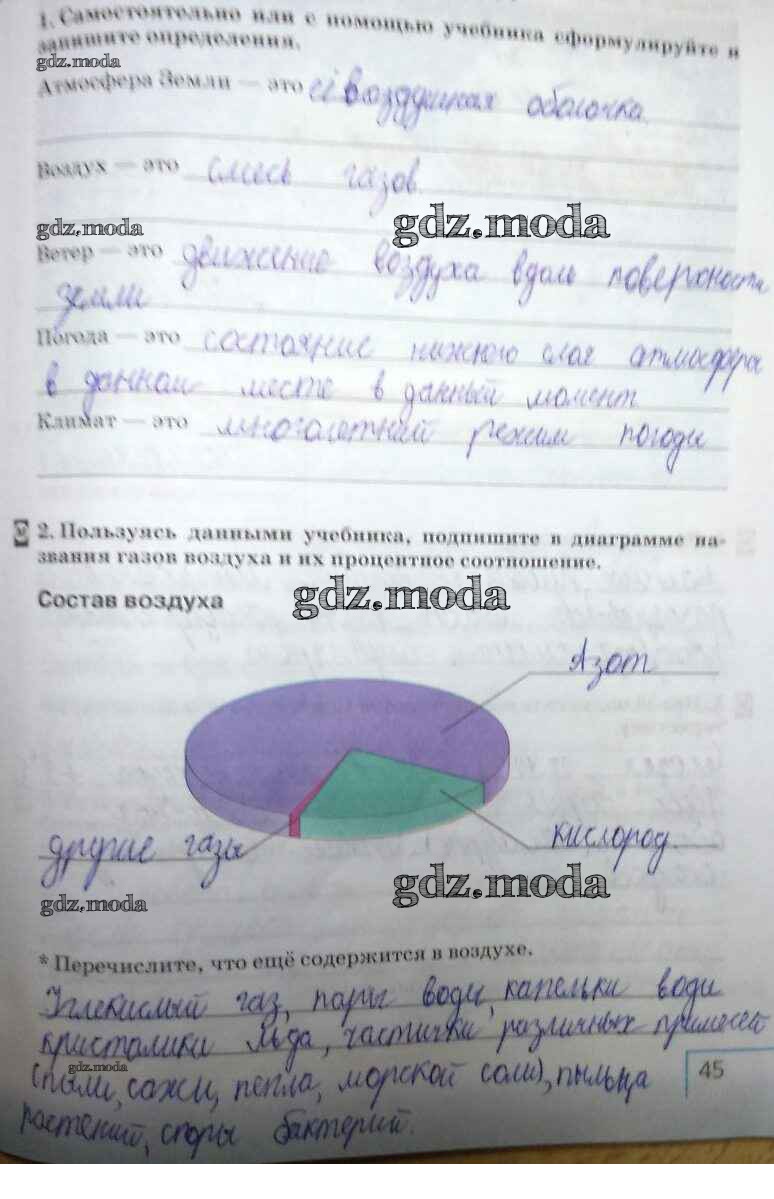 1. Самостоятельно или с помощью учебника сформулируйте и
запишите определения.
gdz.moda
Атмосфера Земли — это её воздушная оболочка.
Воздух — это смесь газов.
gdz.moda
gdz.moda
Ветер — это движение воздуха вдоль поверхности
земли
Погода — это состояние нижнего слоя атмосферы
в данном месте в данный момент
Климат — это многолетний режим погоды
2. Пользуясь данными учебника, подпишите в диаграмме на-
звания газов воздуха и их процентное соотношение.
Состав воздуха
gdz.moda
Азот
другие газы
кислород.
gdz.moda
gdz.moda
* Перечислите, что ещё содержится в воздухе.
Углекислый газ, пары воды, капельки воды
кристалики льда, частички различных примесей
gdz.moda
(пыли, сажи, пепла, морской соли), пыльца
растений, споры бактерий.
45